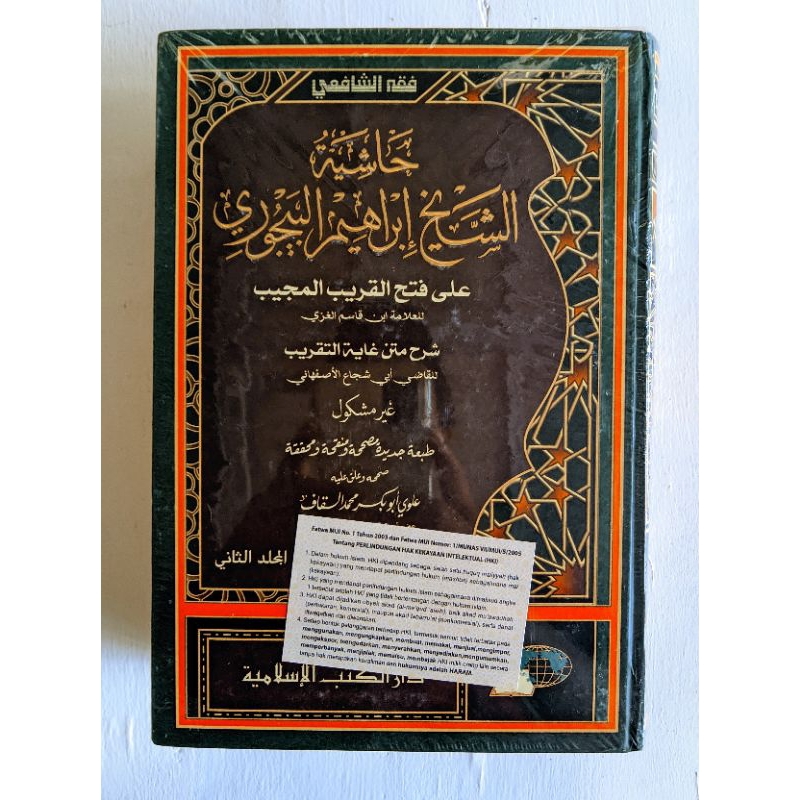 فقه الشافعي
حَاشِيَةُ
الشَّيْخ إِبْرَاهِيْم البَيْجُوْرِي
على فتح القريب المجيب
للعلامة ابن قاسم الغزي
شرح متن غاية التقريب
للقاضي أبي شجاع الأصفهاني
غير مشكول
طبعة جديدة مصححة ومنقحة ومحققة
صححه وعلق عليه
علوي أبو بكر محمد السقاف
المجلد الثاني
Fatwa MUI No. 1 Tahun 2003 dan Fatwa MUI Nomor: 1/MUNAS VII/MUI/5/2005
Tentang PERLINDUNGAN HAK KEKAYAAN INTELEKTUAL (HKI)
1. Dalam hukum Islam, HKI dipandang sebagai salah satu huquq maliyyah (hak
kekayaan) yang mendapat perlindungan hukum (mashun) sebagaimana mal
(kekayaan).
2. HKI yang mendapat perlindungan hukum Islam sebagaimana dimaksud angka
1 tersebut adalah HKI yang tidak bertentangan dengan hukum Islam.
3. HKI dapat dijadikan obyek akad (al-ma'qud 'alaih), baik akad mu'awadhah
(pertukaran, komersial), maupun akad tabarru'at (nonkomersial), serta dapat
diwaqafkan dan diwariskan.
4. Setiap bentuk pelanggaran terhadap HKI, termasuk namun tidak terbatas pada
menggunakan, mengungkapkan, membuat, memakai, menjual, mengimpor,
mengekspor, mengedarkan, menyerahkan, menyediakan, mengumumkan,
memperbanyak, menjiplak, memalsu, membajak HKI milik orang lain secara
tanpa hak merupakan kezaliman dan hukumnya adalah HARAM.
دار الكتب الإسلامية